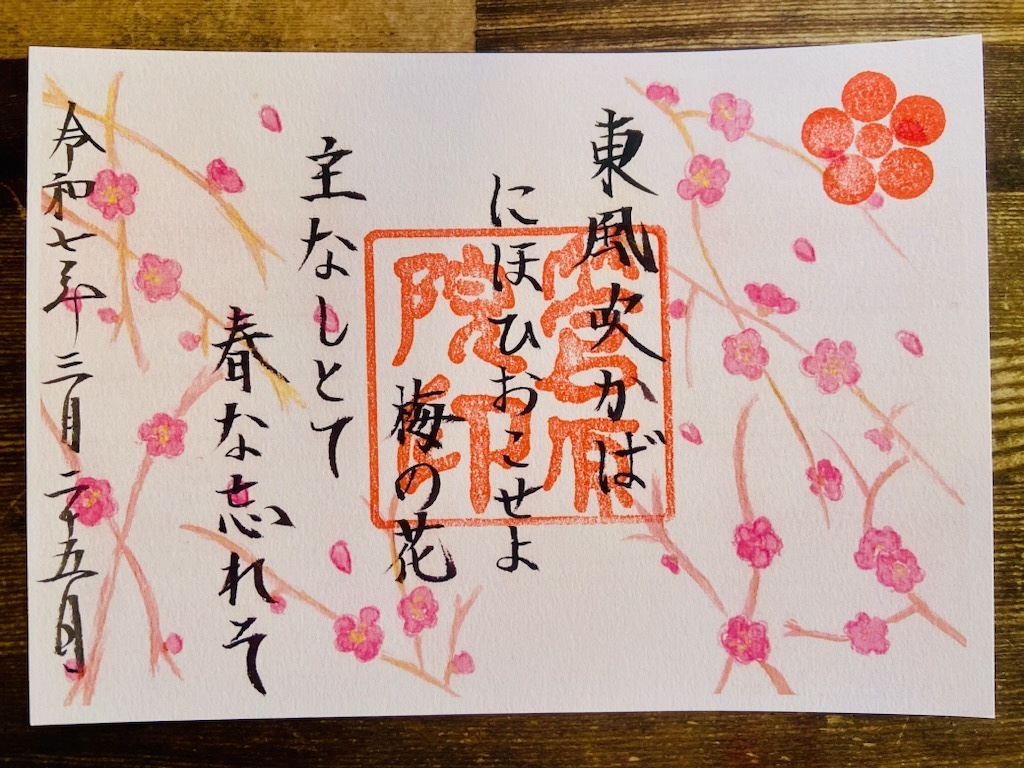 東風吹かば
にほひおこせよ
梅の花
主なしとて
春な忘れそ
令和七年三月二十五日
院印